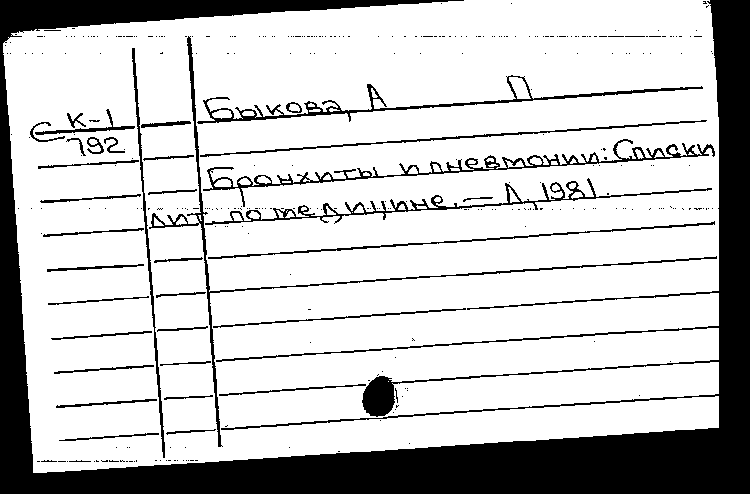 С К-1/792
Быкова, А П
Бронхиты и пневмонии: Списки
лит. по медицине. — Л, 1981.